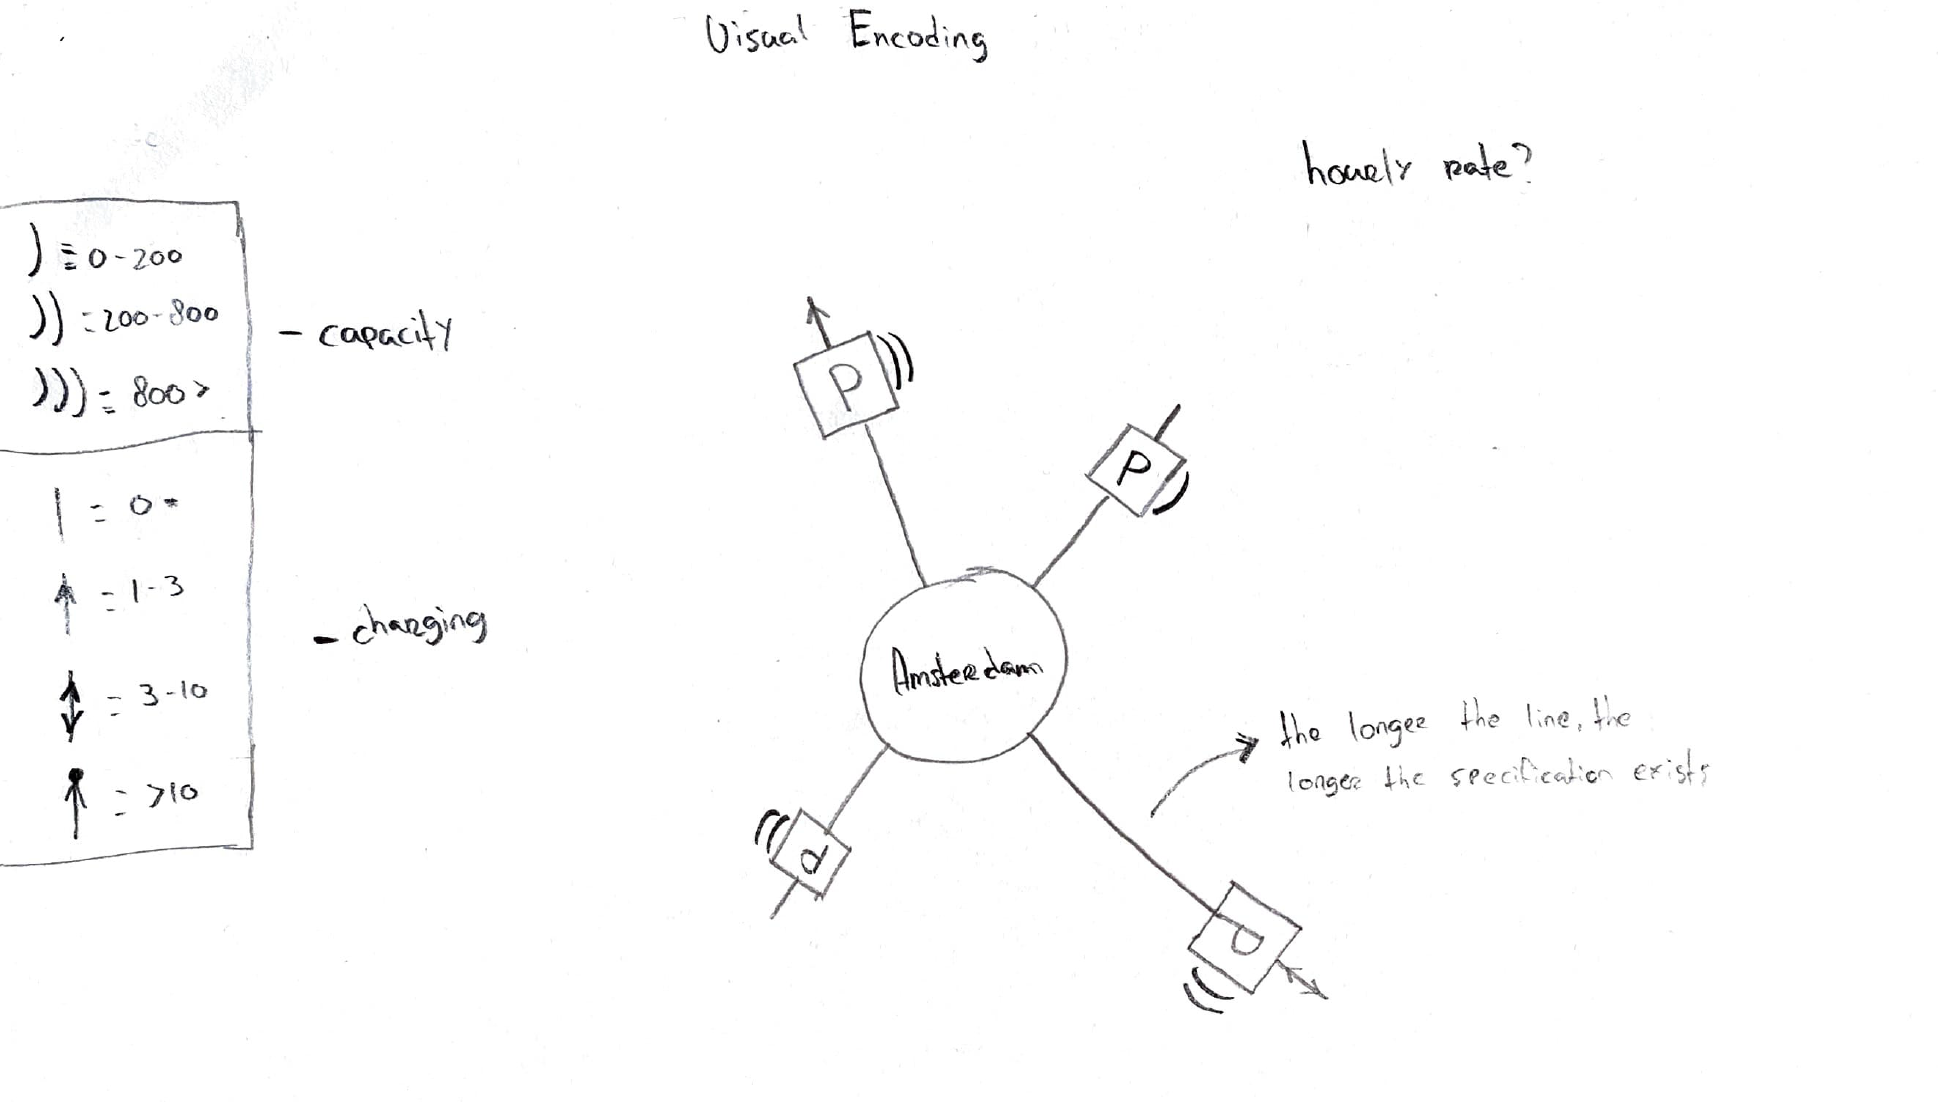 Visual Encoding
hourly rate?
) = 0-200
)) = 200-800
))) = 800>
- capacity
| = 0
↑ = 1-3
↕ = 3-10
↑ = >10
- charging
P
P
Amsterdam
the longer the line, the
longer the specification exists
P
P